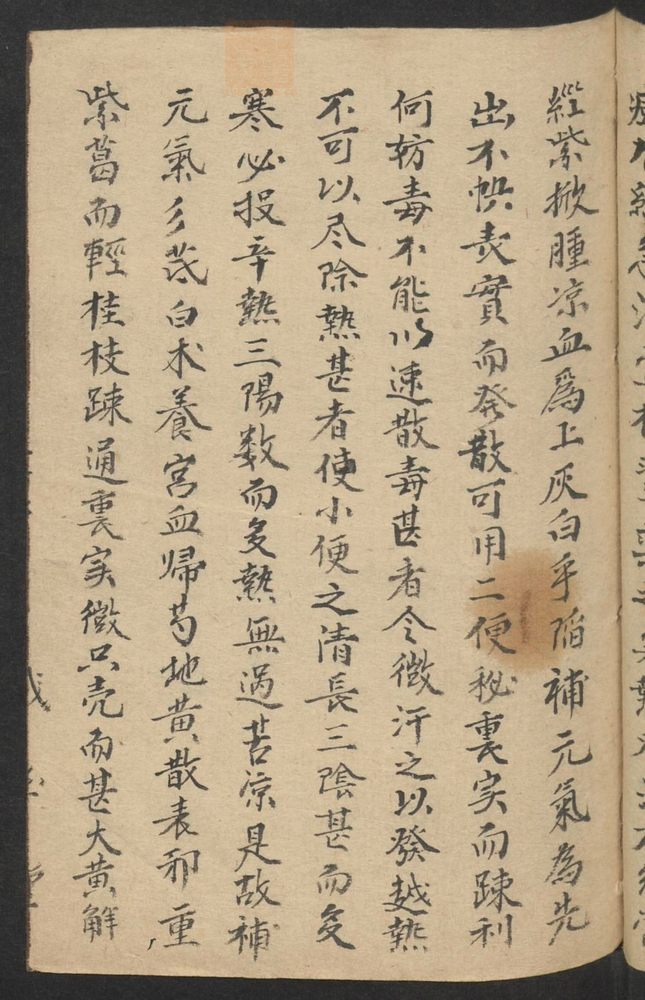 經紫掀腫凉血爲上灰白平陷補元氣為先
出不快表實而發散可用二便秘裏实而踈利
何妨毒不能以速散毒甚者令微汗之以發越熱
不可以尽除熱甚者使小便之清長三陰甚而多
寒必投辛熱三陽数而多熱無過苦凉是故補
元氣参茋白术養宮血歸芍地黄散表邪重
紫葛而輕桂枝踈通裏实微只壳而甚大黄解